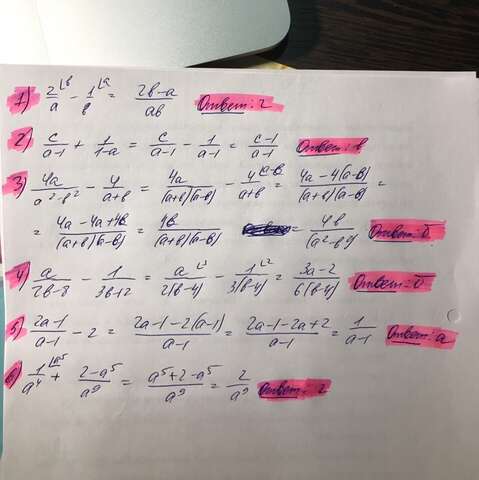 1) 2/a - 1/b = 2b-a/ab Ответ: г
2) c/a-1 + 1/1-a = c/a-1 - 1/a-1 = c-1/a-1 Ответ: в
3) 4a/a²-b² - 4/a+b = 4a/(a+b)(a-b) - 4/a+b = 4a-4(a-b)/(a+b)(a-b) =
= 4a-4a+4b/(a+b)(a-b) = 4b/(a+b)(a-b) = 4b/(a²-b²) Ответ: б
4) a/2b-8 - 1/3b-12 = a/2(b-4) - 1/3(b-4) = 3a-2/6(b-4) Ответ: б
5) 2a-1/a-1 - 2 = 2a-1-2(a-1)/a-1 = 2a-1-2a+2/a-1 = 1/a-1 Ответ: а
6) 1/a⁴ + 2-a⁵/a⁹ = a⁵+2-a⁵/a⁹ = 2/a⁹ Ответ: г